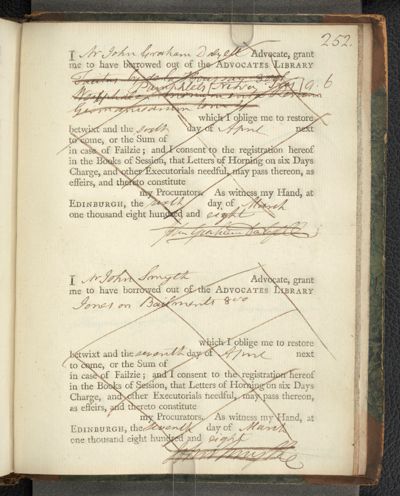 252.
I Mr John Graham Dalyell Advocate, grant
me to have borrowed out of the ADVOCATES LIBRARY
Pamphlets
which I oblige me to restore
betwixt and the sixth day of April next
to come, or the Sum of
in case of Failzie; and I consent to the registration hereof
in the Books of Session, that Letters of Horning on six Days
Charge, and other Executorials needful, may pass thereon, as
effeirs, and thereto constitute
my Procurators. As witness my Hand, at
EDINBURGH, the sixth day of March
one thousand eight hundred and eight
John Graham Dalyell
I Mr John Smyth Advocate, grant
me to have borrowed out of the ADVOCATES LIBRARY
Jones on Bailments 8vo
which I oblige me to restore
betwixt and the seventh day of April next
to come, or the Sum of
in case of Failzie; and I consent to the registration hereof
in the Books of Session, that Letters of Horning on six Days
Charge, and other Executorials needful, may pass thereon,
as effeirs, and thereto constitute
my Procurators. As witness my Hand, at
EDINBURGH, the seventh day of March
one thousand eight hundred and eight
John Smyth